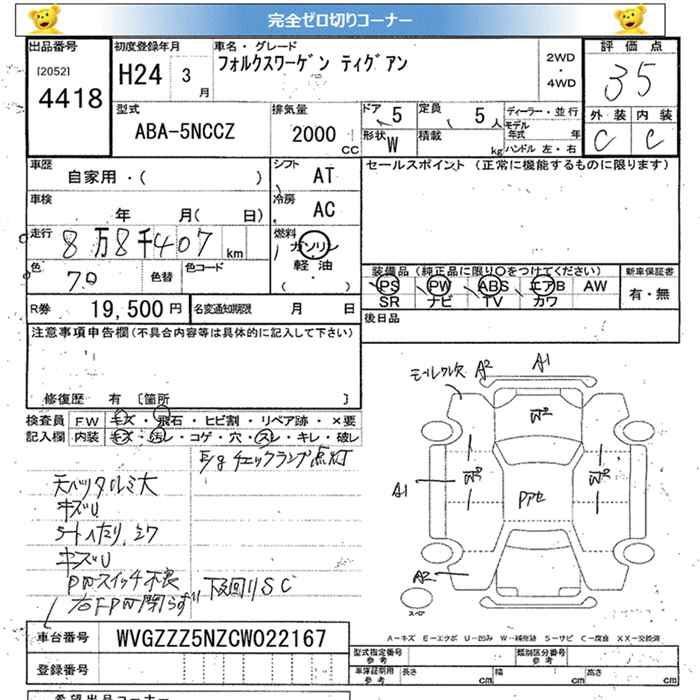 完全ゼロ切りコーナー
出品番号 初度登録年月 車名・グレード 評価点
[2052] 4418 H24 3月 フォルクスワーゲン ティグアン 2WD・4WD 35
型式 排気量 ドア 5 定員 5人 ディーラー・並行 外装 内装
ABA-5NCCZ 2000CC 形状 W 積載 kg モデル年式 年 C C
ハンドル 左・右
車歴 シフト セールスポイント (正常に機能するものに限ります)
自家用・( ) AT
車検 冷房
年 月( 日) AC
走行 8万8千407km 燃料
ガソリン
色 色替 色コード 軽油
( )
装備品(純正品に限り○をつけてください) 新車保証書
PS PW ABS エアB AW 有・無
SR ナビ TV カワ
R券 19,500円 名変通知期限 月 日
後日品
注意事項申告欄(不具合内容等は具体的に記入して下さい)
修復歴 有 〔箇所 〕
検査員 FW キズ・飛石・ヒビ割・リペア跡・×要
記入欄 内装 キズ・汚レ・コゲ・穴・スレ・キレ・破レ
E/gチェックランプ点灯
天バリタルミ大
キズU
シートヘたり、スワ
キズU
PWスイッチ不良
右FPW閉らず 下廻りSC
モールワレ欠 A2 A1
W2
A1 W2 W2
Pアセ
A2
スペア
A-キズ E-エクボ U-凹み W-補修跡 S-サビ C-腐食 XX-交換済
車台番号 WVGZZZ5NZCW022167
型式指定番号 参考 類別区分番号 参考
登録番号 車庫証明用 参考 長さ cm 幅 cm 高さ cm
希望出品コーナー